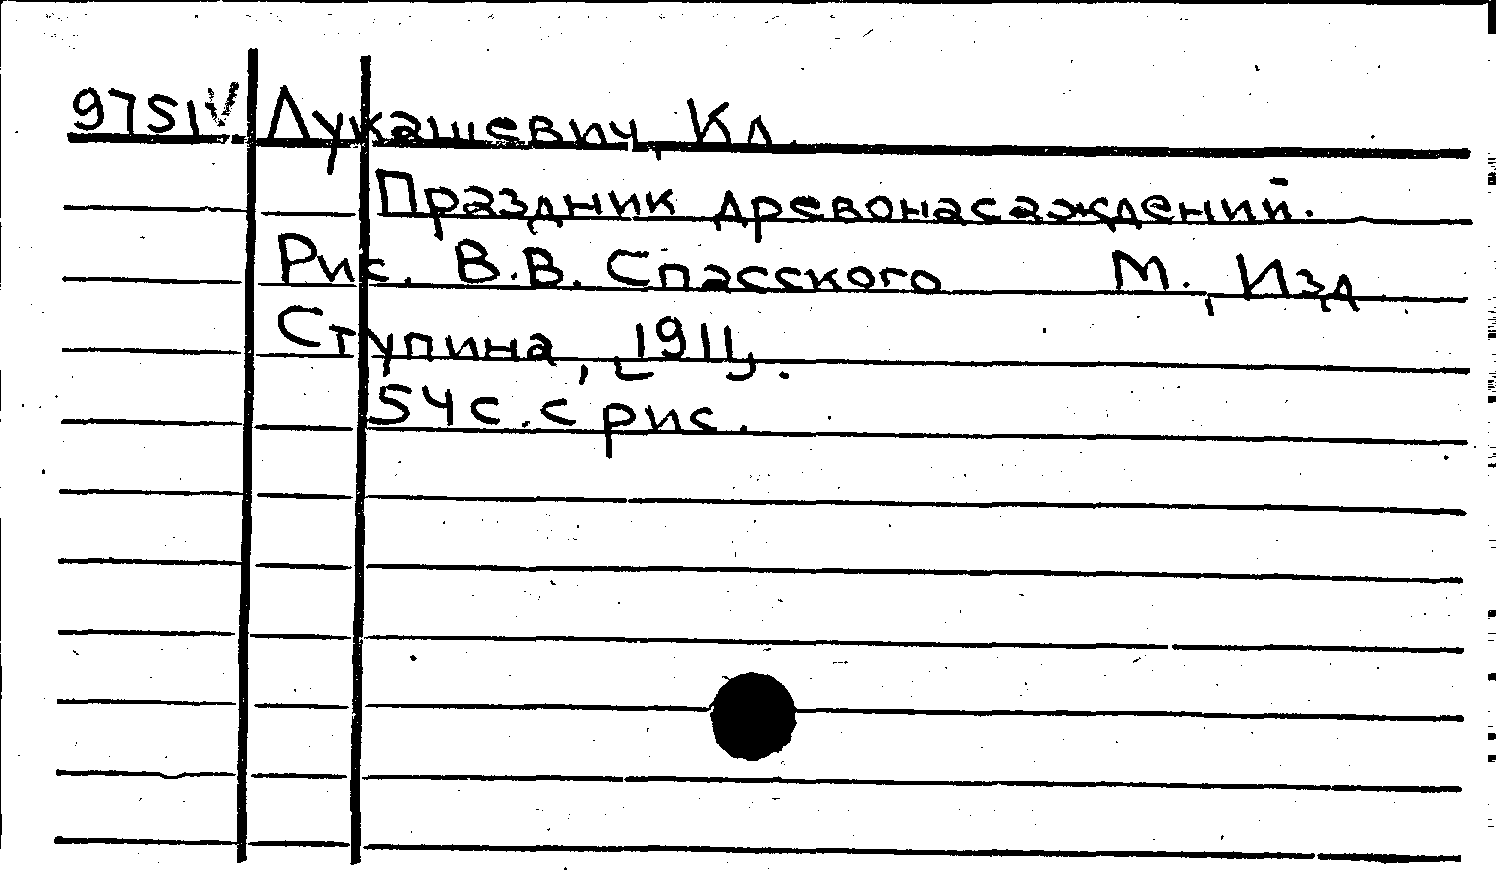 9751V Лукашевич, Кл.
Праздник древонасаждений.
Рис. В.В. Спасского М., Изд
Ступина, 1911.
54с. с рис.